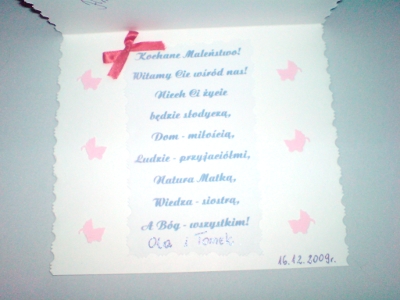 Kochane Maleństwo!
Witamy Cię wśród nas!
Niech Ci życie
będzie słodyczą,
Dom - miłością,
Ludzie - przyjaciółmi,
Natura Matką,
Wiedza - siostrą,
A Bóg - wszystkim!
Ola i Tomek
16.12.2009r.